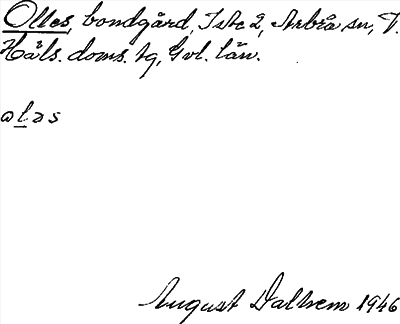 Olles, bondgård, Iste 2, Arbrå sn, V.
Häls. doms. tg, Gvl. län.
oləs
August Dalhem 1946